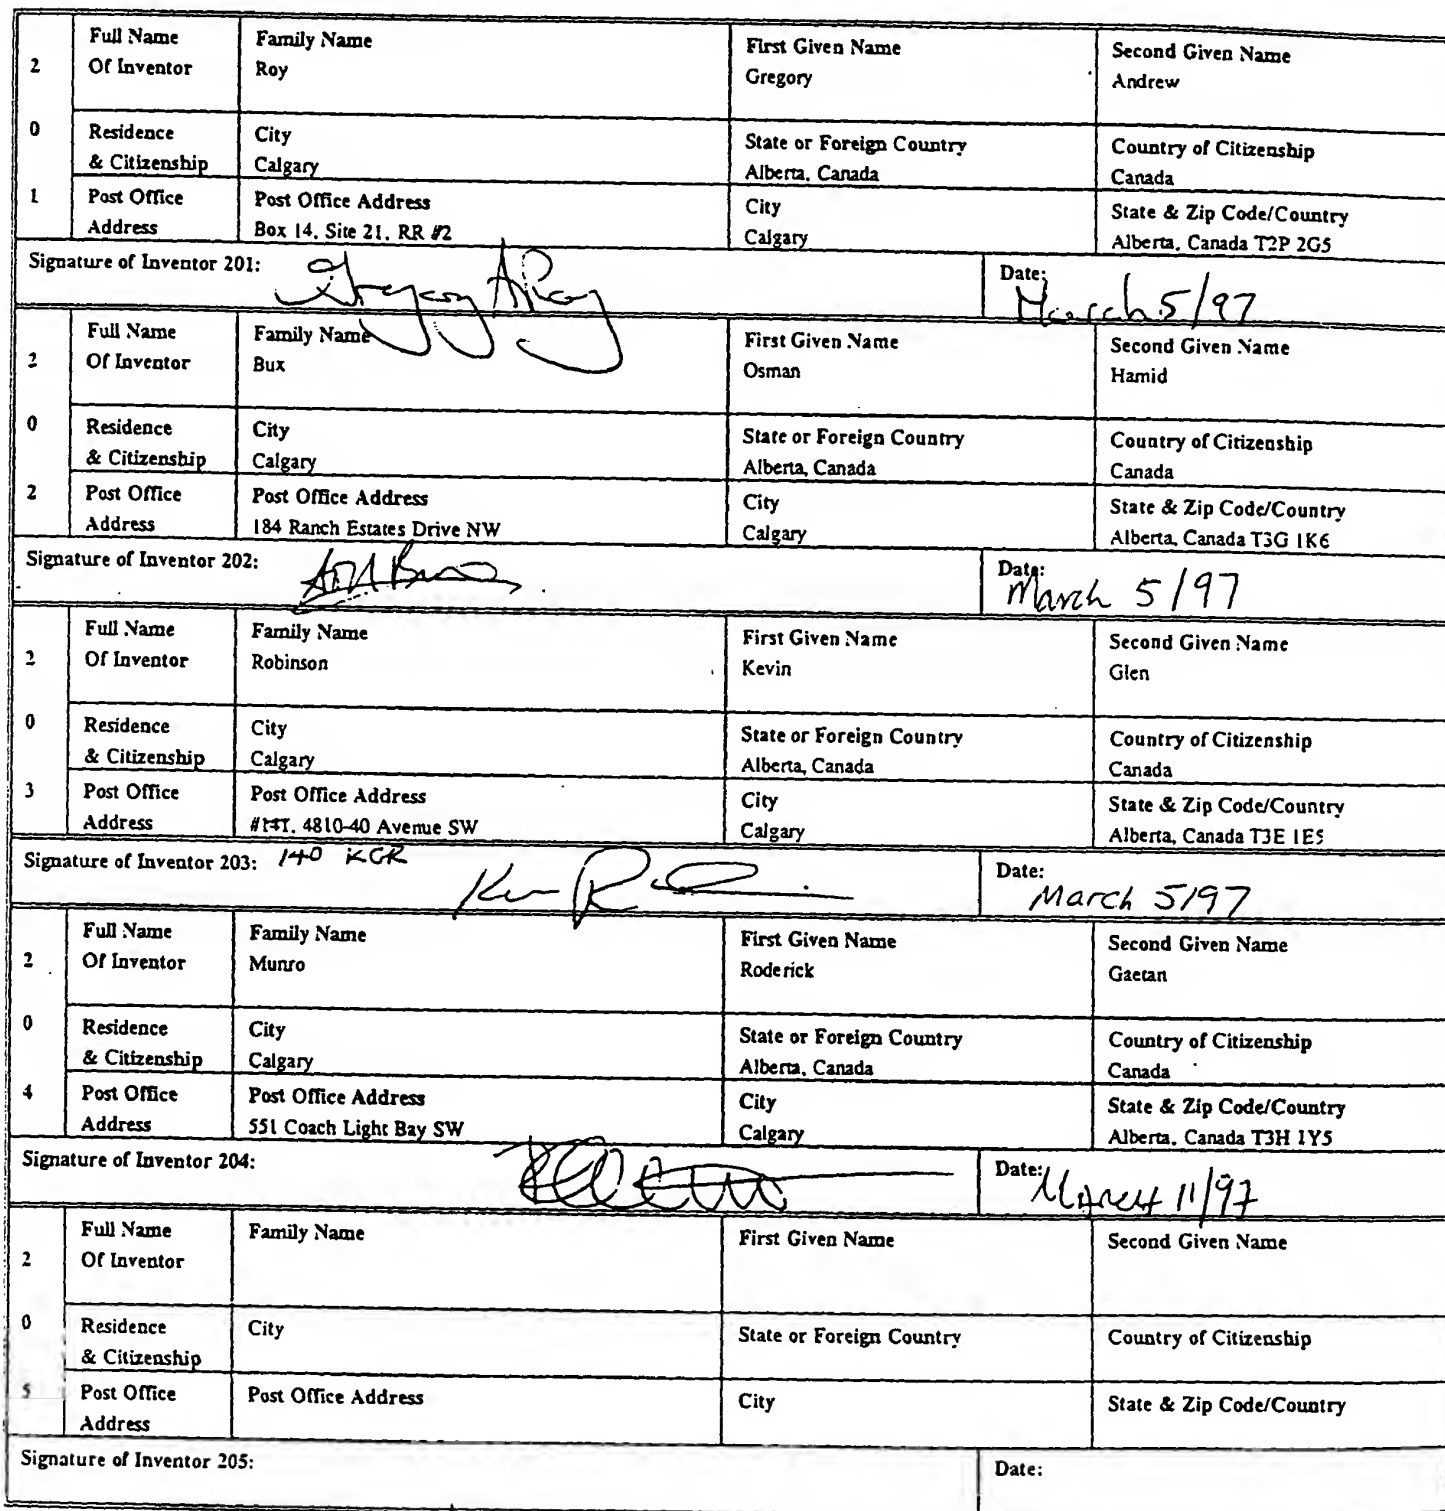 2 0 1
Full Name Of Inventor
Family Name
Roy
First Given Name
Gregory
Second Given Name
Andrew
Residence & Citizenship
City
Calgary
State or Foreign Country
Alberta, Canada
Country of Citizenship
Canada
Post Office Address
Post Office Address
Box 14, Site 21, RR #2
City
Calgary
State & Zip Code/Country
Alberta, Canada T2P 2G5
Signature of Inventor 201: Gregory A Roy
Date: March 5/97
2 0 2
Full Name Of Inventor
Family Name
Bux
First Given Name
Osman
Second Given Name
Hamid
Residence & Citizenship
City
Calgary
State or Foreign Country
Alberta, Canada
Country of Citizenship
Canada
Post Office Address
Post Office Address
184 Ranch Estates Drive NW
City
Calgary
State & Zip Code/Country
Alberta, Canada T3G 1K6
Signature of Inventor 202:
Date: March 5/97
2 0 3
Full Name Of Inventor
Family Name
Robinson
First Given Name
Kevin
Second Given Name
Glen
Residence & Citizenship
City
Calgary
State or Foreign Country
Alberta, Canada
Country of Citizenship
Canada
Post Office Address
Post Office Address
4810-40 Avenue SW
City
Calgary
State & Zip Code/Country
Alberta, Canada T3E 1E5
Signature of Inventor 203: 140 KGR
Date: March 5/97
2 0 4
Full Name Of Inventor
Family Name
Munro
First Given Name
Roderick
Second Given Name
Gaetan
Residence & Citizenship
City
Calgary
State or Foreign Country
Alberta, Canada
Country of Citizenship
Canada
Post Office Address
Post Office Address
551 Coach Light Bay SW
City
Calgary
State & Zip Code/Country
Alberta, Canada T3H 1Y5
Signature of Inventor 204:
Date: March 11/97
2 0 5
Full Name Of Inventor
Family Name
First Given Name
Second Given Name
Residence & Citizenship
City
State or Foreign Country
Country of Citizenship
Post Office Address
Post Office Address
City
State & Zip Code/Country
Signature of Inventor 205:
Date: